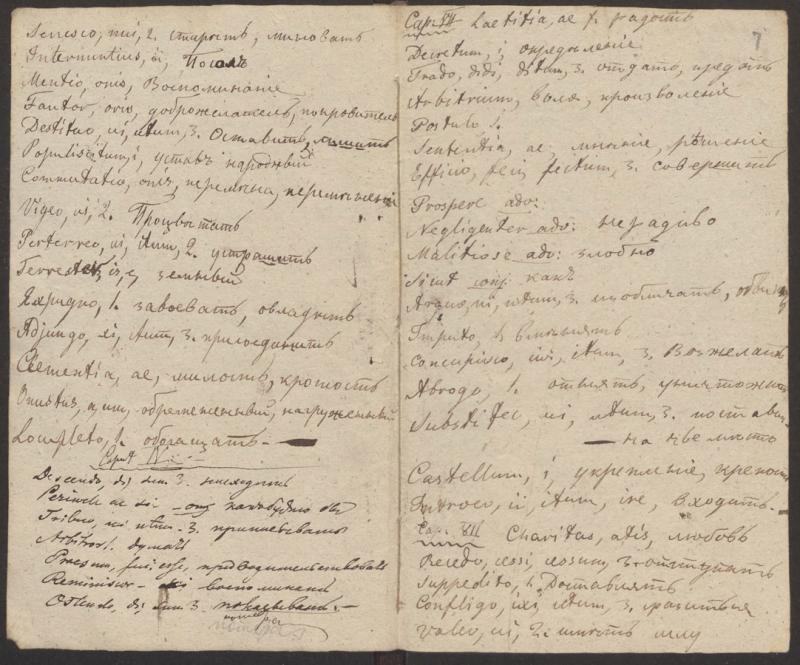 Senesco, nui, 2. старѣть, миновать
Internuntius, ii, Посолъ
Mentio, onis, Воспоминаніе
Fautor, oris, доброжелатель, покровитель
Destituo, ui, utum, 3. Оставить, лишить
Populiscitum, i, уставъ народный
Commutatio, onis, перемѣна, перемѣненіе
Vigeo, ui, 2. Процвѣтать
Perterreo, ui, itum, 2. устрашить
Terrester, is, e, земный
Expugno, 1. завоевать, овладѣть
Adjungo, xi, ctum, 3. присоединить
Clementia, ae, милость, кротость
Onustus, a, um, обремененный, нагруженный
Completo, 1. обогащать.
Caput IV
Descendo, di, sum 3. нисходить
Perinde ac si - conj какъ будто бы
Tribuo, ui, utum. 3. приписывать
Arbitror 1. думать
Praesum, fui, esse, предводительствовать
Reminiscor - воспоминать
Ostendo, di, sum 3. показывать. -
7
Cap. Laetitia, ae f. радость
Decretum, i, опредѣленіе
Trado, didi, ditum, 3. отдать, предать
Arbitrium, воля, произволеніе
Postulo 1.
Sententia, ae, мнѣніе, рѣшеніе
Efficio, feci, fectum, 3. совершить
Prospere adv:
Negligenter adv: нерадиво
Malitiose adv: злобно
Sicut conj: какъ
Arguo, ui, utum, 3. изобличать,
Imputo, 1. вмѣнять
Concupisco, ivi, itum, 3. Возжелать
Abrogo, 1. отнять, уничтожить
Substituo, ui, utum, 3. поставить
на чье мѣсто
Castellum, i, укрѣпленіе, крѣпость
Introeo, ii, itum, ire, входить.
Cap. VII Charitas, atis, любовь
Recedo, cessi, cessum, 3 отступать
Suppedito, 1. Доставлять
Confligo, ixi, ctum, 3. сразиться
Valeo, ui, 2. имѣть силу